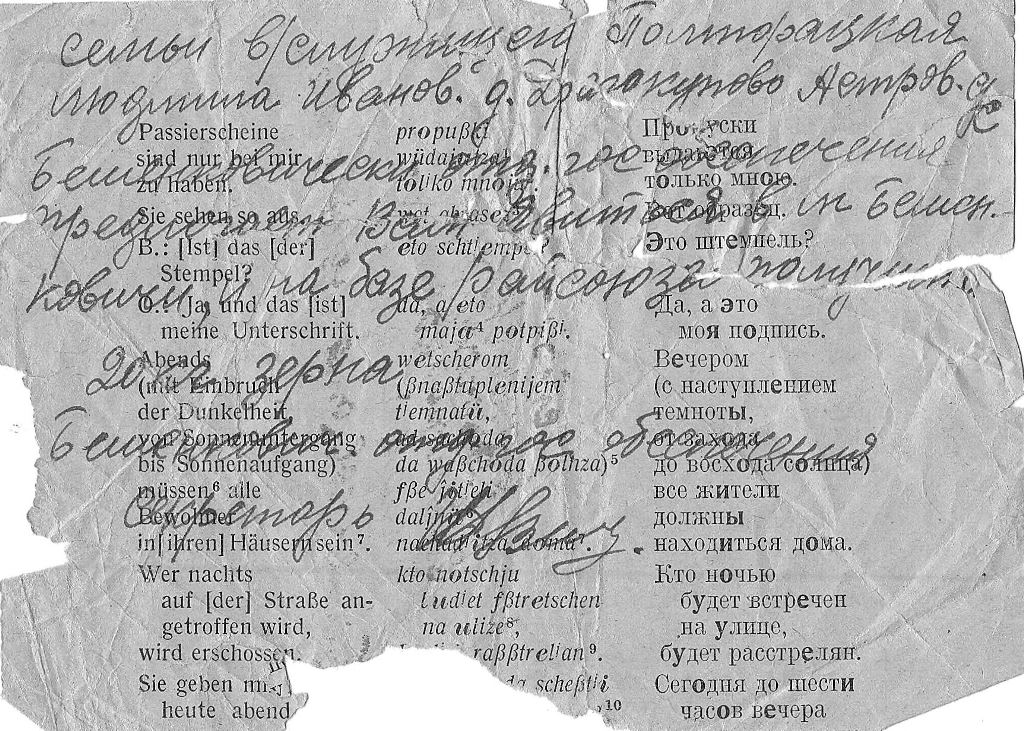 семьи в/служащей Полторацкая
Людмила Иванов. д. Астров. с/с
Бешенковический отд. гос обеспечения
предлогает Вам явиться в м Бешен-
ковичи, и на базе райсоюза получить
20 кг зерна
Бешенкович. отд гос обеспечения
Секретарь
Passierscheine propußki Пропуски
sind nur bei mir wüdajutza выдаются
zu haben. tolʲko mnojuʲ. только мною.
Sie sehen so aus. wot abrasez Вот образец.
B.: [Ist] das [der] eto schtʲempʲelʲ? Это штемпель?
Stempel?
O.: Ja, und das [ist] da, a eto Да, а это
meine Unterschrift. maja⁴ potpißʲ. моя подпись.
Abends wetscherom Вечером
(mit Einbruch (ßnaßtuplenijem (с наступлением
der Dunkelheit, tʲemnatü, темноты,
von Sonnenuntergang ad sachoda от захода
bis Sonnenaufgang) da waßchoda ßolnza)⁵ до восхода солнца)
müssen⁶ alle fße jitʲeli все жители
Bewohner daljnü⁶ должны
in [ihren] Häusern sein⁷. nachadʲitza doma⁷. находиться дома.
Wer nachts kto notschju Кто ночью
auf [der] Straße an- budʲet fßtretschen будет встречен
getroffen wird, na ulize⁸, на улице,
wird erschossen. raßßtrelʲan⁹. будет расстрелян.
Sie geben da scheßtʲi Сегодня до шести
heute abend ¹⁰ часов вечера